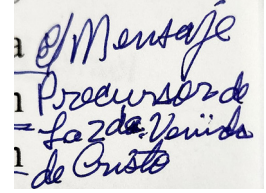 a el Mensaje
n Precursor de
La 2da. Venida
n de Cristo